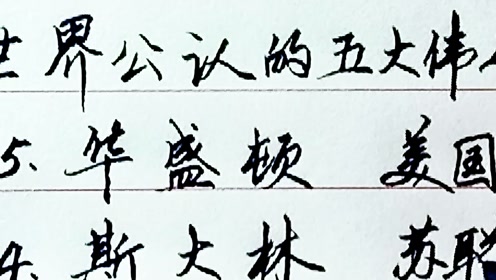 世界公认的五大伟人
5、华盛顿 美国
4、斯大林 苏联